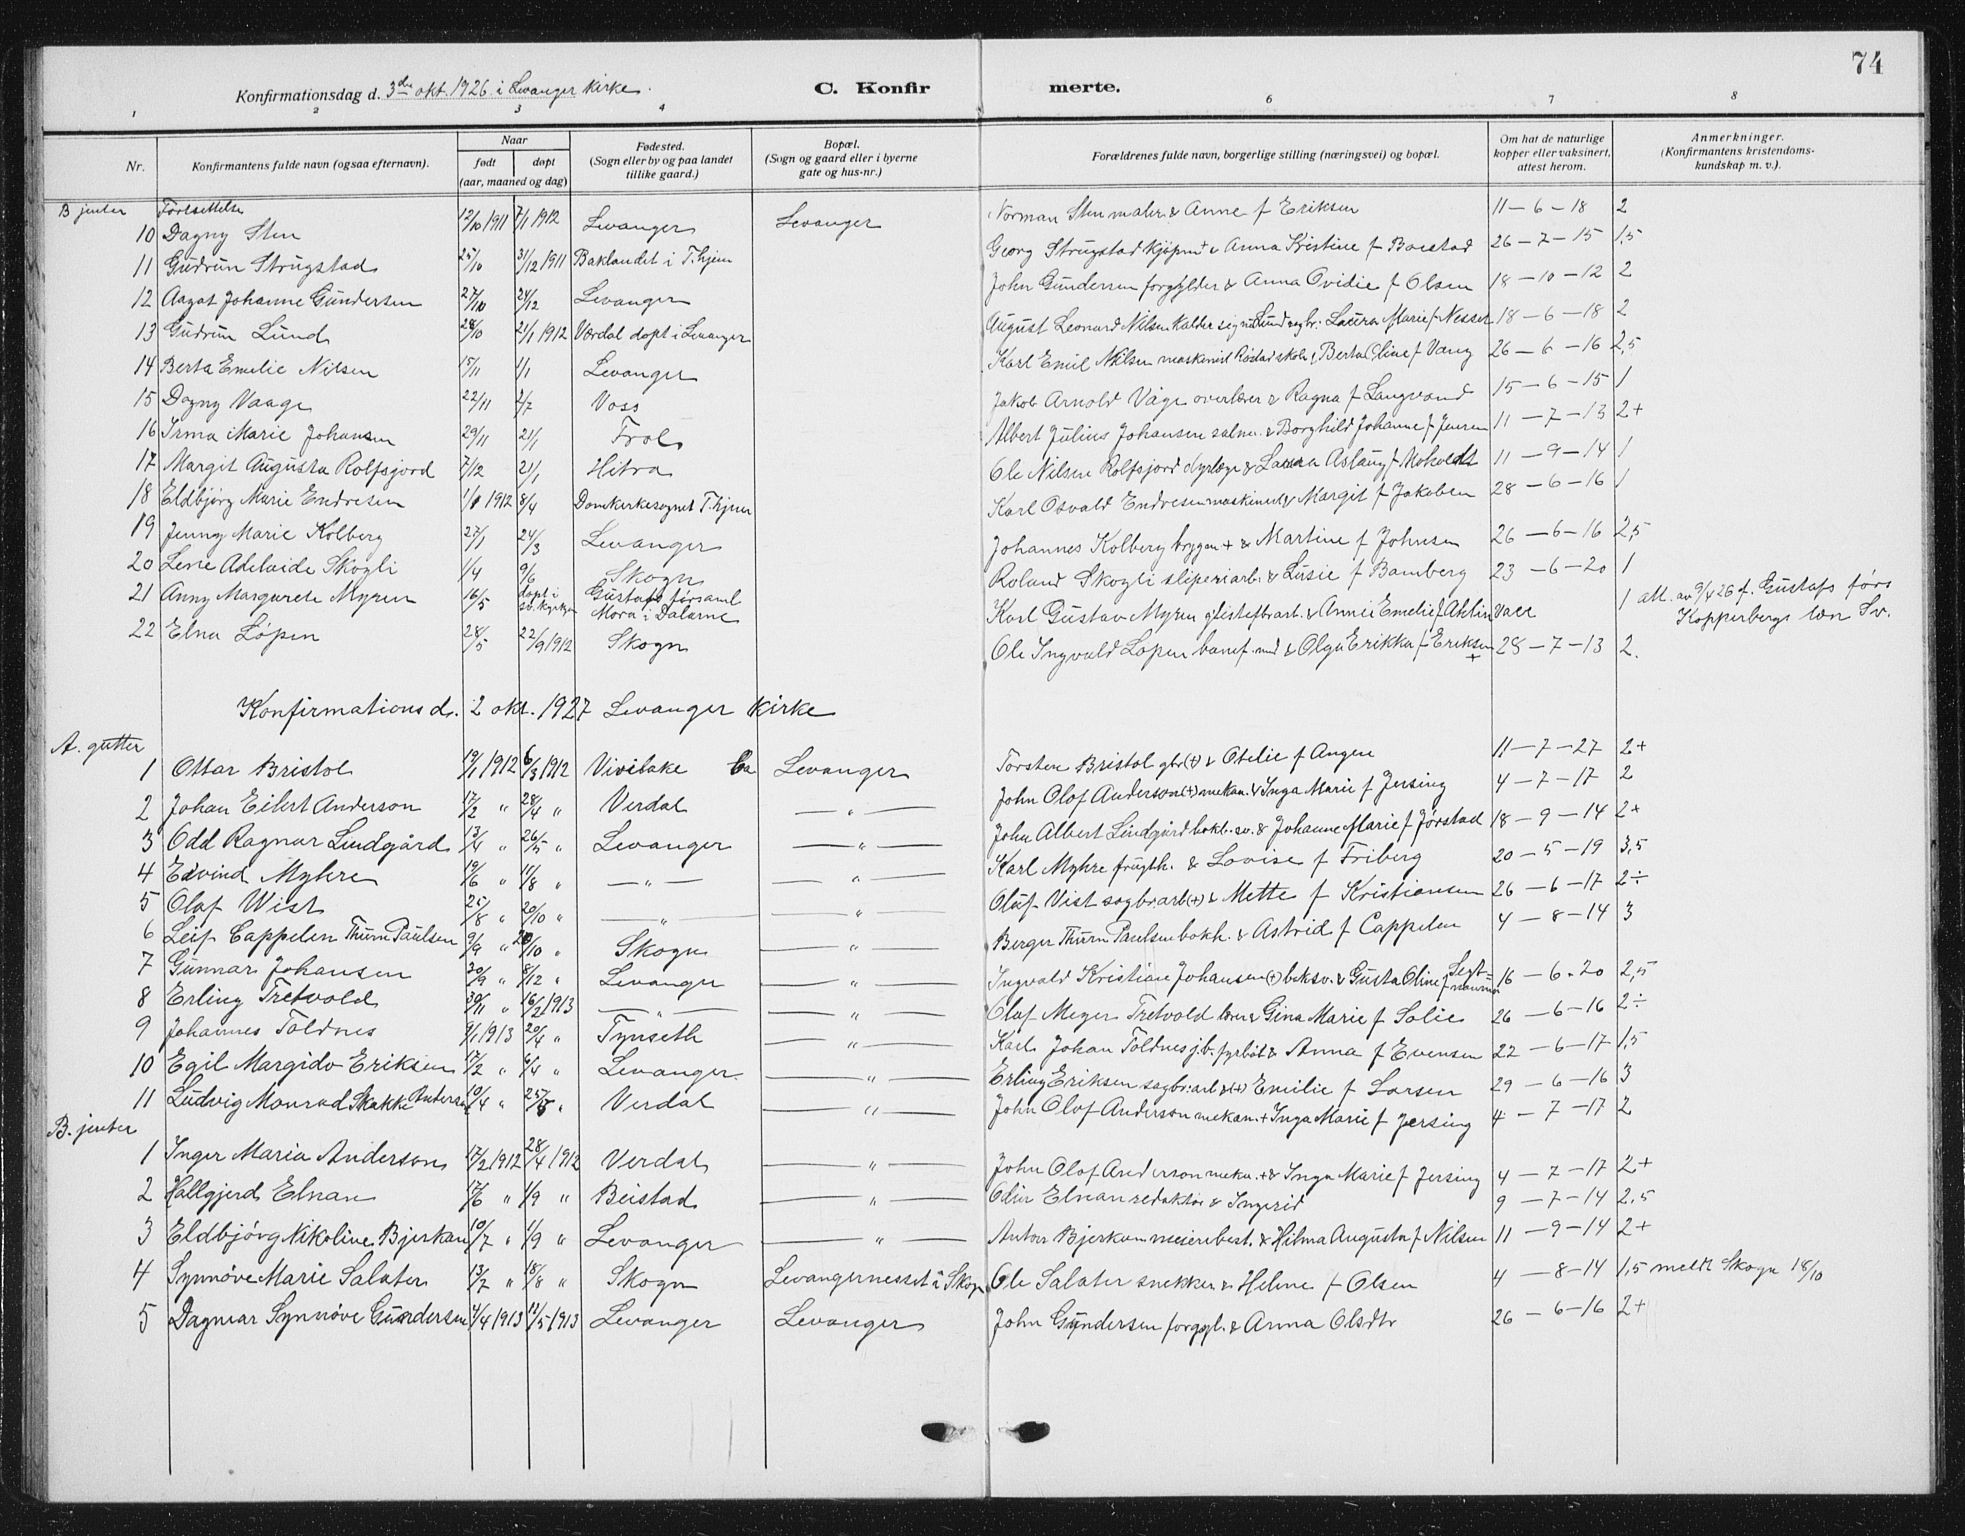 74
Konfirmationsdag d. 3die okt. 1926 i Levanger kirke. C. Konfirmerte.
1 2 3 4 6 7 8
Nr. Konfirmantens fulde navn (ogsaa efternavn). Naar født døpt (aar, maaned og dag) Fødested. (Sogn eller by og paa landet tillike gaard.) Bopæl. (Sogn og gaard eller i byerne gate og hus-nr.) Forældrenes fulde navn, borgerlige stilling (næringsvei) og bopæl. Om hat de naturlige kopper eller vaksinert, attest herom. Anmerkninger. (Konfirmantens kristendomskundskap m. v.).
B jenter Fortsettelse
10 Dagny Sten 12/10 1911 7/1 1912 Levanger Levanger Norman Sten maler & Anne f Eriksen 11-6-18 2
11 Gudrun Strugstad 25/10 31/12 1911 Baklandet i T.hjem Georg Strugstad kjøpm + & Anna Kristine f Boestad 26-7-15 1,5
12 Aagot Johanne Gundersen 27/10 24/12 Levanger John Gundersen forgylder & Anna Ovidie f Olsen 18-10-12 2
13 Gudrun Lund 28/10 21/1 1912 Værdal døpt i Levanger August Leonard Nilsen kalder sig Lund Laura Marie f Nesset 18-6-18 2
14 Berta Emelie Nilsen 15/11 1/1 Levanger Karl Emil Nilsen maskinist Røstad skole & Berta Oline f Vang 26-6-16 2,5
15 Dagny Vaage 22/11 2/7 Voss Jakob Arnold Våge overlærer & Ragna f Langvand 15-6-15 1
16 Irma Marie Johansen 29/11 21/1 Frol Albert Julius Johansen salm. & Borghild Johanne f Jensen 11-7-13 2+
17 Margit Augusta Rolfsjord 7/12 21/1 Hitra Ole Nilsen Rolfsjord dyrlæge & Laura Aslaug f Moholdt 11-9-14 1
18 Eldbjørg Marie Endresen 1/1 1912 8/4 Domkirkesognet T.hjem Karl Osvald Endresen maskinist & Margit f Jakobsen 28-6-16 1
19 Jenny Marie Kolberg 27/1 24/3 Levanger Johannes Kolberg bryggem + & Martine f Johnsen 26-6-16 2,5
20 Lene Adelaide Skogli 1/4 9/6 Skogn Roland Skogli sliperiarb. & Lusie f Bamberg 23-6-20 1
21 Anny Margarete Myren 16/5 døpt i sv. kyrkan Gustafs församl Mora i Dalarne Karl Gustav Myren & Anni Emelie f Ahlin vacc 1 att. av 9/4 26 f. Gustafs förs Kopperbergs læn Sv.
22 Elna Løpen 28/5 22/9 1912 Skogn Ole Ingvald Løpen banef. md & Olga Erikka f Eriksen + 28-7-13 2.
Konfirmations d. 2 okt. 1927 Levanger kirke
A. gutter
1 Ottar Bristol 19/1 1912 6/3 1912 Vivibake Ca Levanger Torsten Bristol gbr (+) & Otelie f Angen 11-7-27 2+
2 Johan Eilert Anderson 17/2 " 28/4 " Verdal " John Olof Anderson (+) mekan. & Inga Marie f Jersing 4-7-17 2
3 Odd Ragnar Lindgård 13/4 " 26/5 " Levanger " John Albert Lindgård bokb. sv. & Johanne Marie f Jørstad 18-9-14 2+
4 Edvind Myhre 19/6 " 11/8 " " " Karl Myhre frugth. & Lovise f Friberg 20-5-19 3,5
5 Olaf Wist 25/8 " 20/10 " " " Oluf Vist sagbr.arb (+) & Mette f Kristiansen 26-6-17 2÷
6 Leif Cappelen Thurn Paulsen 9/9 " 20/10 " Skogn " Berger Thurn Paulsen bokh. & Astrid f Cappelen 4-8-14 3
7 Gunnar Johansen 20/9 " 8/12 " Levanger " Ingvald Kristian Johansen (+) boksv. & Gusta Oline f 16-6-20 2,5
8 Erling Tretvold 30/11 " 16/2 1913 " " Olaf Meyer Tretvold lærer & Gina Marie f Solie 26-6-16 2÷
9 Johannes Toldnes 9/1 1913 20/4 " Tynseth " Karl Johan Toldnes j.b. fyrbøt & Anna f Evensen 22-6-17 1,5
10 Egil Margido Eriksen 17/2 " 6/4 " Levanger " Erling Eriksen sagbr.arb & (+) Emilie f Larsen 29-6-16 3
11 Ludvig Monrad Skakke Anderson 10/4 " 25/5 " Verdal " John Olof Anderson mekan. + Inga Marie f Jersing 4-7-17 2
B. jenter
1 Inger Maria Anderson 17/2 1912 28/4 1912 Verdal " John Olof Anderson mekan. + & Inga Marie f Jersing 4-7-17 2+
2 Hallgjerd Elnan 17/6 " 1/9 " Beistad " Odin Elnan redaktør & Ingerid 9-7-14 2,5
3 Eldbjørg Nikoline Bjerkan 10/7 " 1/9 " Levanger " Anton Bjerkan meieribest. & Hilma Augusta f Nilsen 11-9-14 2+
4 Synnøve Marie Salater 13/7 " 18/8 " Skogn Levangernesset i Skogn Ole Salater snekker & Helene f Olsen 4-8-14 1,5 meldt Skogn 18/10
5 Dagmar Synnøve Gundersen 4/4 1913 12/5 1913 Levanger Levanger John Gundersen forgyl. & Anna Olsdtr 26-6-16 2+